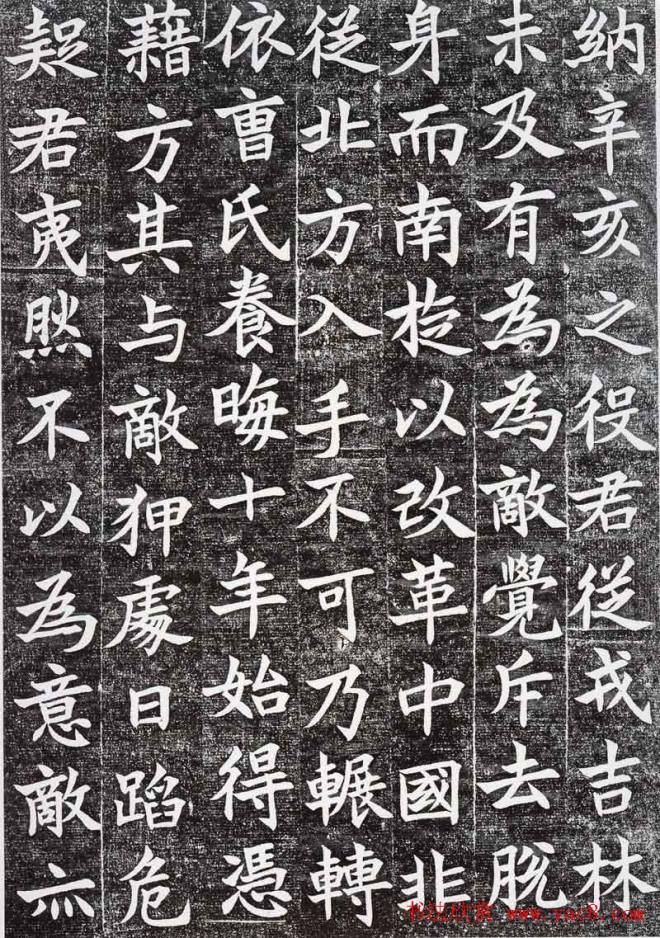 納辛亥之役君從戎吉林
未及有為為敵覺斥去脫
身而南於以改革中國非
從北方入手不可乃輾轉
依曺氏養晦十年始得憑
藉方其与敵狎處日蹈危
䂓君夷然不以為意敵亦
书法欣赏 www.yac8.com